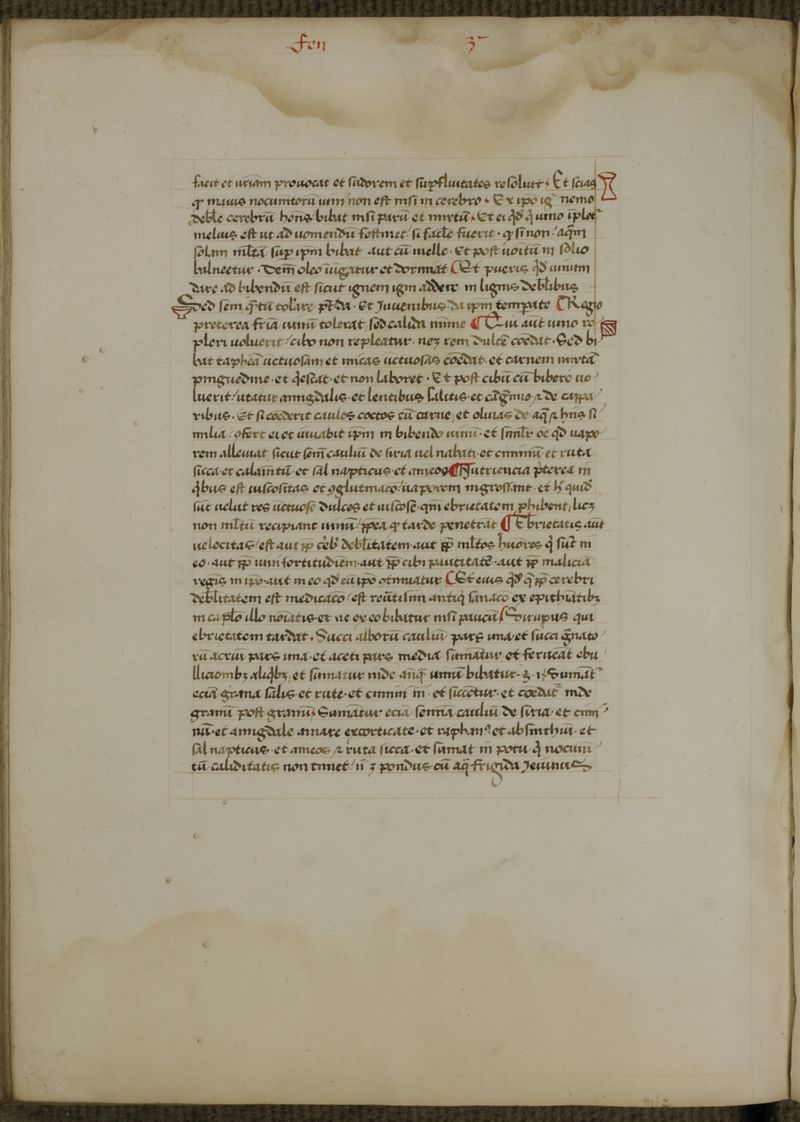 Fen 3ª
facit et urinam provocat et sudorem et supfluitates resolvit · Et scias
qꝫ maius nocumētorū vini non est nisi in cerebro · Ex ipo igʳ nemo
debile cerebrū hens bibat nisi parū et mixtū · Et ei qđ vino īplet
melius est ut ad vomendū festinet / si facile fuerit · qꝫ si non / aqm
solam mltā sup ipm bibat aut cū melle · Et post voitū in solio
balneetur · Dein oleo iūgatur et dormiat Et pueris qđ vinum
dare ad bibendū est sicut ignem igni addere in lignis debilibus
Sed sem qtū tolare pt da · Et Juvenibus da ipm tempate Regio
preterea frīa vinū tolerat sed calida mīme Qui aut vino re
pleri voluerit / cibo non repleatur · neqꝫ rem dulcē coēdat · Sed bi
bat rapheā uctuosam et micas uctuosas coēdat · et carnem mixtā
pinguedine · et qescat · et non laboret · Et post cibū cū bibere vo
luerit / utatur amigdalis · et lentibus salitis · et cāginio ⁊ de cappa
ribus · Et si coēderit caules coctos cū carne et olivas de aq ⁊ hiis si
milia · ofert ei et iuvabit ipm in bibendo vinū · et similr oē qđ vapo
rem alleviat sicut sem cauliū de siria vel nabati · et ciminū · et ruta
sicca · et calamītū · et sal napticus · et ameos Nutriencia pterea in
qbus est viscositas et ꝯglutinaco / vaporem ingrossant · et h quidē
sūt velut res uctuose dulces et viscose · qm ebrietatem phibent / licꝫ
non mltū recipiant vinū / ppea qꝫ tarde penetrāt Ebrietatis aut
velocitas / est aut pp cebi debilitatem · aut pp mltos huores q sūt in
eo · aut pp vini fortitudinem · aut pp cibi paucitatē · aut pp malicia
regis in ipo · aut in eo qđ cū ipo otinuatur Et eius qđ q pp cerebri
debilitatem est medicaco / est reūtissim antiq sanaco ex epithiatibꝫ
in caplo illo noīatis · et ne ex eo bibatur nisi paucū Sirupus qui
ebrietatem tardat · Succi alborū cauliū pars una · et succi gnato
rū acriū pars una · et aceti pars media sumatur et fervēat ebu
llicionibꝫ aliqbꝫ / et sumatur inde anq vinū bibatur · ʒ · i · Sumātʳ
eciā grana salis et rute · et cimini in · et siccetur · et coēdatʳ inde
granū post granū · Sumātur ecia semina cauliū de siria · et cimi
nū · et amigdale amare excorticate · et raphanꝰ et absinthiū · et
sal napticus · et ameos ⁊ ruta sicca · et sumat in potu q nocum
tū caliditatis non timet / ii ʒ pondus · cū aq frigida Jeiunus